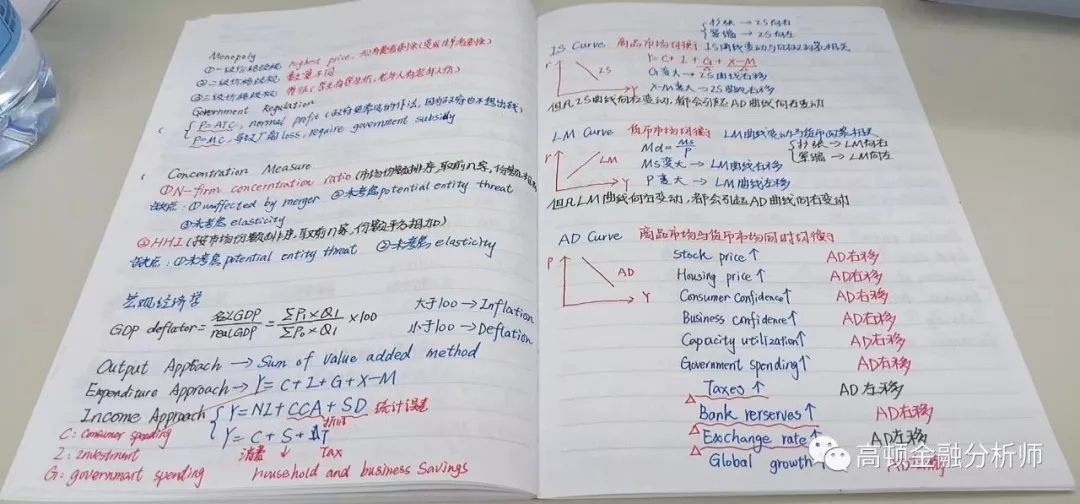 Monopoly
①一级价格歧视 highest price, 无消费者剩余(变成生产者剩余)
②二级价格歧视 数量不同
③三级价格歧视
Government Regulation
P=ATC, normal profit
P=MC, 导致厂商loss, require government subsidy
Concentration Measure
①N-firm concerntration ratio (市场份额排序,取前n家,份额
缺点: ①unaffected by merger ②未考虑potential entity threat
③未考虑elasticity
②HHI (按市场份额排序,取前n家,份额平方相加)
缺点: ①未考虑potential entity threat ②未考虑elasticity
宏观经济学
GDP deflator = 名义GDP/realGDP = ΣP₁×Q₁/ΣP₀×Q₁ ×100
大于100→Inflation
小于100→Deflation
Output Approach → Sum of value added method
Expenditure Approach → Y = C+I+G+X-M
Income Approach
Y=NI+CCA+SD 统计误差
折旧
Y= C + S + T
消费 ↓ Tax
household and business Savings
C: Consumer spending
I: Investment
G: government spending
扩张→IS向右
紧缩→IS向左
IS Curve 商品市场均衡
Y= C+I+G+X-M
G变大→IS曲线右移
X-M变大→IS曲线右移
r IS Y
但凡IS曲线向右变动,都会引起AD曲线向右变动
LM Curve 货币市场均衡
扩张→LM向右
紧缩→LM向左
Md= Ms/P
Ms变大→LM曲线右移
P变大→LM曲线左移
r LM Y
但凡LM曲线向右变动,都会引起AD曲线向右变动
AD Curve 商品市场与货币市场同时均衡
P AD Y
Stock price↑ AD右移
Housing price↑ AD右移
Consumer Confidence↑ AD右移
Business confidence↑ AD右移
Capacity utilization↑ AD右移
Government spending↑ AD右移
△Taxes↑ AD左移
Bank rerserves↑ AD右移
△Exchange rate↑ AD左移
△Global growth↑
高顿金融分析师